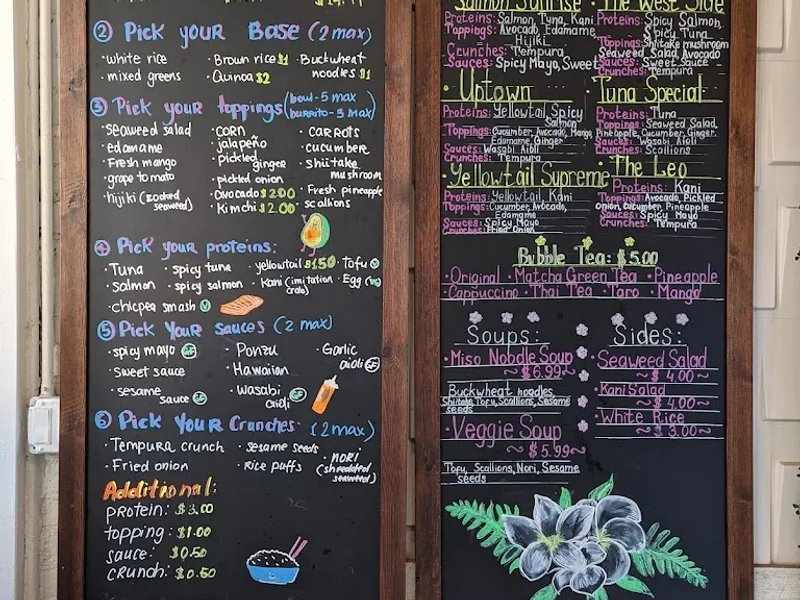 ② Pick your Base (2 max)
·white rice ·Brown rice $1 ·Buckwheat
·mixed greens ·Quinoa $2 noodles $1
③ Pick your toppings (bowl-5 max
burrito-3 max)
·Seaweed salad ·corn ·carrots
edamame jalapeño cucumber
·Fresh mango ·Pickled ginger ·Shiitake mushroom
·grape tomato pickled onion
·hijiki (cooked seaweed) ·avocado $2.00 ·Fresh pineapple
·Kimchi $2.00 scallions
④ Pick your proteins:
·Tuna ·spicy tuna ·yellowtail $1.50 ·tofu
·Salmon ·spicy salmon ·Kani (imitation crab) ·Egg
·chicpea smash V
⑤ Pick your sauces (2 max)
·spicy mayo GF ·Ponzu ·Garlic aioli GF
·sweet sauce ·Hawaiian
·sesame sauce GF ·Wasabi aioli GF
⑥ Pick your Crunches: (2 max)
·Tempura crunch ·sesame seeds ·nori
·Fried onion ·Rice puffs (shredded seaweed)
Additional:
protein: $3.00
topping: $1.00
sauce: $0.50
crunch: $0.50
Salmon Sunrise
Proteins: Salmon, Tuna, Kani
Toppings: Avocado, Edamame
Hijiki
Crunches: Tempura
Sauces: Spicy Mayo, Sweet
·The West Side
Proteins: Spicy Salmon
Spicy Tuna
Toppings: Shiitake mushroom
Seaweed Salad, Avocado
Sauces: Sweet Sauce
Crunches: Tempura
·Uptown
Proteins: Yellowtail, Spicy
Salmon
Toppings: Cucumber, Avocado, Mango
Edamame, Ginger
Sauces: Wasabi Aioli
Crunches: Tempura
·Tuna Special
Proteins: Tuna
Toppings: Seaweed Salad
Pineapple, Cucumber, Ginger
Sauces: Wasabi, Aioli
Crunches: Scallions
·Yellowtail Supreme
Proteins: Yellowtail, Kani
Toppings: Cucumber, Avocado,
Edamame
Sauces: Spicy Mayo
Crunches: Fried Onion
·The Leo
Proteins: Kani
Toppings: Avocado, Pickled
Onion, Cucumber, Pineapple
Sauces: Spicy Mayo
Crunches: Tempura
Bubble Tea: $5.00
·Original ·Matcha Green Tea ·Pineapple
·Cappuccino ·Thai Tea ·Taro ·Mango
Soups:
·Miso Noodle Soup
~$6.99~
Buckwheat noodles,
Shiitake, Tofu, Scallions, Sesame
seeds
·Veggie Soup
~$5.99~
Tofu, Scallions, Nori, Sesame
seeds
Sides:
·Seaweed Salad
~$4.00~
·Kani Salad
~$4.00~
·White Rice
~$3.00~